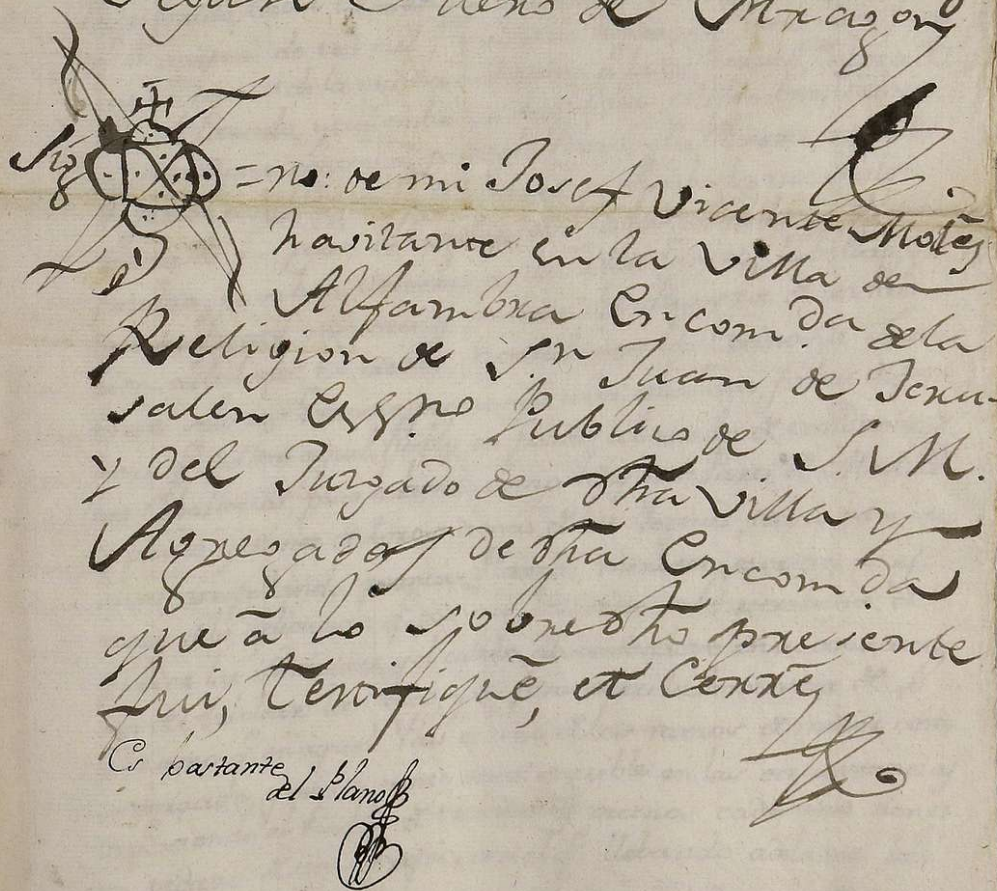 Segun Fuero de Aragon
Sig = no: de mi Josef Vicente
havitante en la Villa de
Alfambra Encom.da de la
Religion de S.n Juan de Jeru-
salen Ess.no Publico de S. M.
y del Juzgado de dha Villa y
Agregados de dha Encom.da
que â lo sobredho presente
fui, Testifiquê, et Cerrê,
Es bastante
del Plano